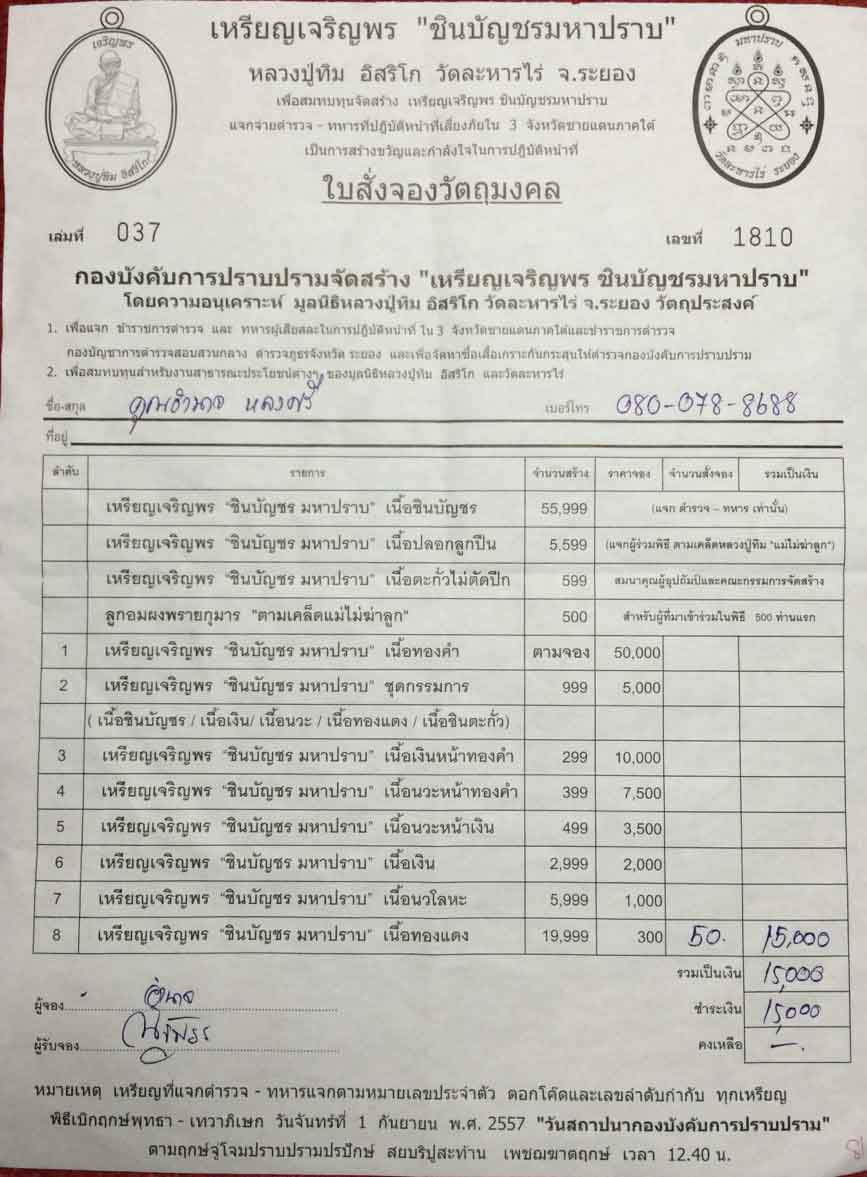 เหรียญเจริญพร "ชินบัญชรมหาปราบ"
หลวงปู่ทิม อิสริโก วัดละหารไร่ จ.ระยอง
เพื่อสมทบทุนจัดสร้าง เหรียญเจริญพร ชินบัญชรมหาปราบ
แจกจ่ายตำรวจ - ทหารที่ปฏิบัติหน้าที่เสี่ยงภัยใน 3 จังหวัดชายแดนภาคใต้
เป็นการสร้างขวัญและกำลังใจในการปฏิบัติหน้าที่
เจริญพร
หลวงปู่ทิม อิสริโก
มหาปราบ
วัดละหารไร่ ระยอง
ใบสั่งจองวัตถุมงคล
เล่มที่ 037 เลขที่ 1810
กองบังคับการปราบปรามจัดสร้าง "เหรียญเจริญพร ชินบัญชรมหาปราบ"
โดยความอนุเคราะห์ มูลนิธิหลวงปู่ทิม อิสริโก วัดละหารไร่ จ.ระยอง วัตถุประสงค์
1. เพื่อแจก ข้าราชการตำรวจ และ ทหารผู้เสียสละในการปฏิบัติหน้าที่ ใน 3 จังหวัดชายแดนภาคใต้และข้าราชการตำรวจ
กองบัญชาการตำรวจสอบสวนกลาง ตำรวจภูธรจังหวัด ระยอง และเพื่อจัดหาซื้อเสื้อเกราะกันกระสุนให้ตำรวจกองบังคับการปราบปราม
2. เพื่อสมทบทุนสำหรับงานสาธารณะประโยชน์ต่างๆ ของมูลนิธิหลวงปู่ทิม อิสริโก และวัดละหารไร่
ชื่อ-สกุล คุณอำนาจ หลงศรี เบอร์โทร 080-078-8688
ที่อยู่
ลำดับ รายการ จำนวนสร้าง ราคาจอง จำนวนสั่งจอง รวมเป็นเงิน
เหรียญเจริญพร "ชินบัญชร มหาปราบ" เนื้อชินบัญชร 55,999 (แจก ตำรวจ – ทหาร เท่านั้น)
เหรียญเจริญพร "ชินบัญชร มหาปราบ" เนื้อปลอกลูกปืน 5,599 (แจกผู้ร่วมพิธี ตามเคล็ดหลวงปู่ทิม "แม่ไม่ฆ่าลูก")
เหรียญเจริญพร "ชินบัญชร มหาปราบ" เนื้อตะกั่วไม่ตัดปีก 599 สมนาคุณผู้อุปถัมป์และคณะกรรมการจัดสร้าง
ลูกอมผงพรายกุมาร "ตามเคล็ดแม่ไม่ฆ่าลูก" 500 สำหรับผู้ที่มาเข้าร่วมในพิธี 500 ท่านแรก
1 เหรียญเจริญพร "ชินบัญชร มหาปราบ" เนื้อทองคำ ตามจอง 50,000
2 เหรียญเจริญพร "ชินบัญชร มหาปราบ" ชุดกรรมการ 999 5,000
( เนื้อชินบัญชร / เนื้อเงิน/ เนื้อนวะ / เนื้อทองแดง / เนื้อชินตะกั่ว)
3 เหรียญเจริญพร "ชินบัญชร มหาปราบ" เนื้อเงินหน้าทองคำ 299 10,000
4 เหรียญเจริญพร "ชินบัญชร มหาปราบ" เนื้อนวะหน้าทองคำ 399 7,500
5 เหรียญเจริญพร "ชินบัญชร มหาปราบ" เนื้อนวะหน้าเงิน 499 3,500
6 เหรียญเจริญพร "ชินบัญชร มหาปราบ" เนื้อเงิน 2,999 2,000
7 เหรียญเจริญพร "ชินบัญชร มหาปราบ" เนื้อนวโลหะ 5,999 1,000
8 เหรียญเจริญพร "ชินบัญชร มหาปราบ" เนื้อทองแดง 19,999 300 50. 15,000
รวมเป็นเงิน 15,000
ผู้จอง อำนาจ ชำระเงิน 15,000
ผู้รับจอง คงเหลือ –.
หมายเหตุ เหรียญที่แจกตำรวจ - ทหารแจกตามหมายเลขประจำตัว ตอกโค๊ดและเลขลำดับกำกับ ทุกเหรียญ
พิธีเบิกฤกษ์พุทธา - เทวาภิเษก วันจันทร์ที่ 1 กันยายน พ.ศ. 2557 "วันสถาปนากองบังคับการปราบปราม"
ตามฤกษ์จู่โจมปราบปรามปรปักษ์ สยบริปูสะท้าน เพชฌฆาตฤกษ์ เวลา 12.40 น.